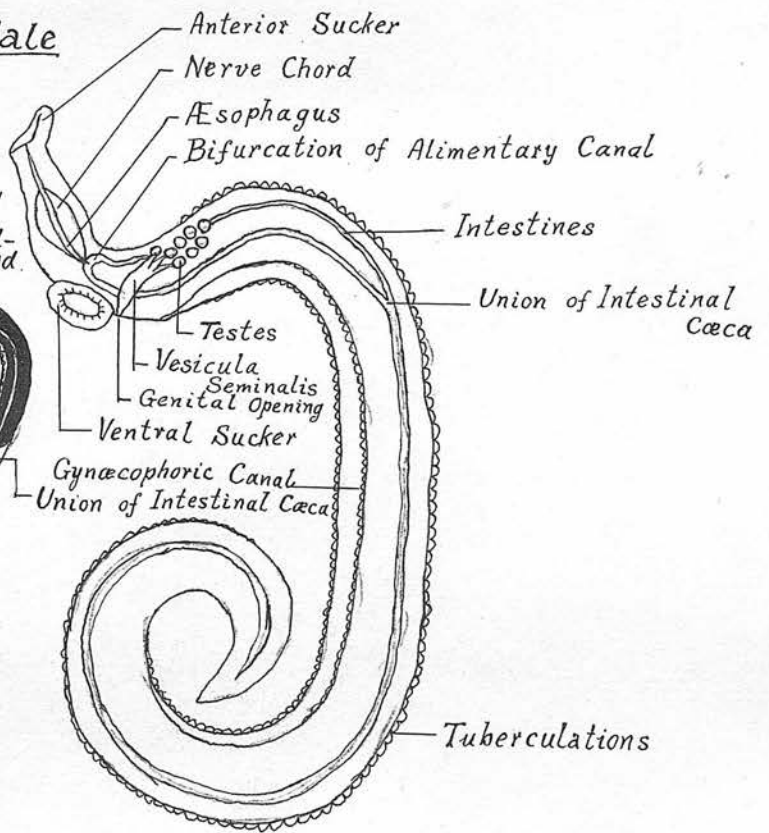 Anterior Sucker
Nerve Chord
Æsophagus
Bifurcation of Alimentary Canal
Intestines
Union of Intestinal
Cæca
Testes
Vesicula
Seminalis
Genital Opening
Ventral Sucker
Gynæcophoric Canal
Union of Intestinal Cæca
Tuberculations